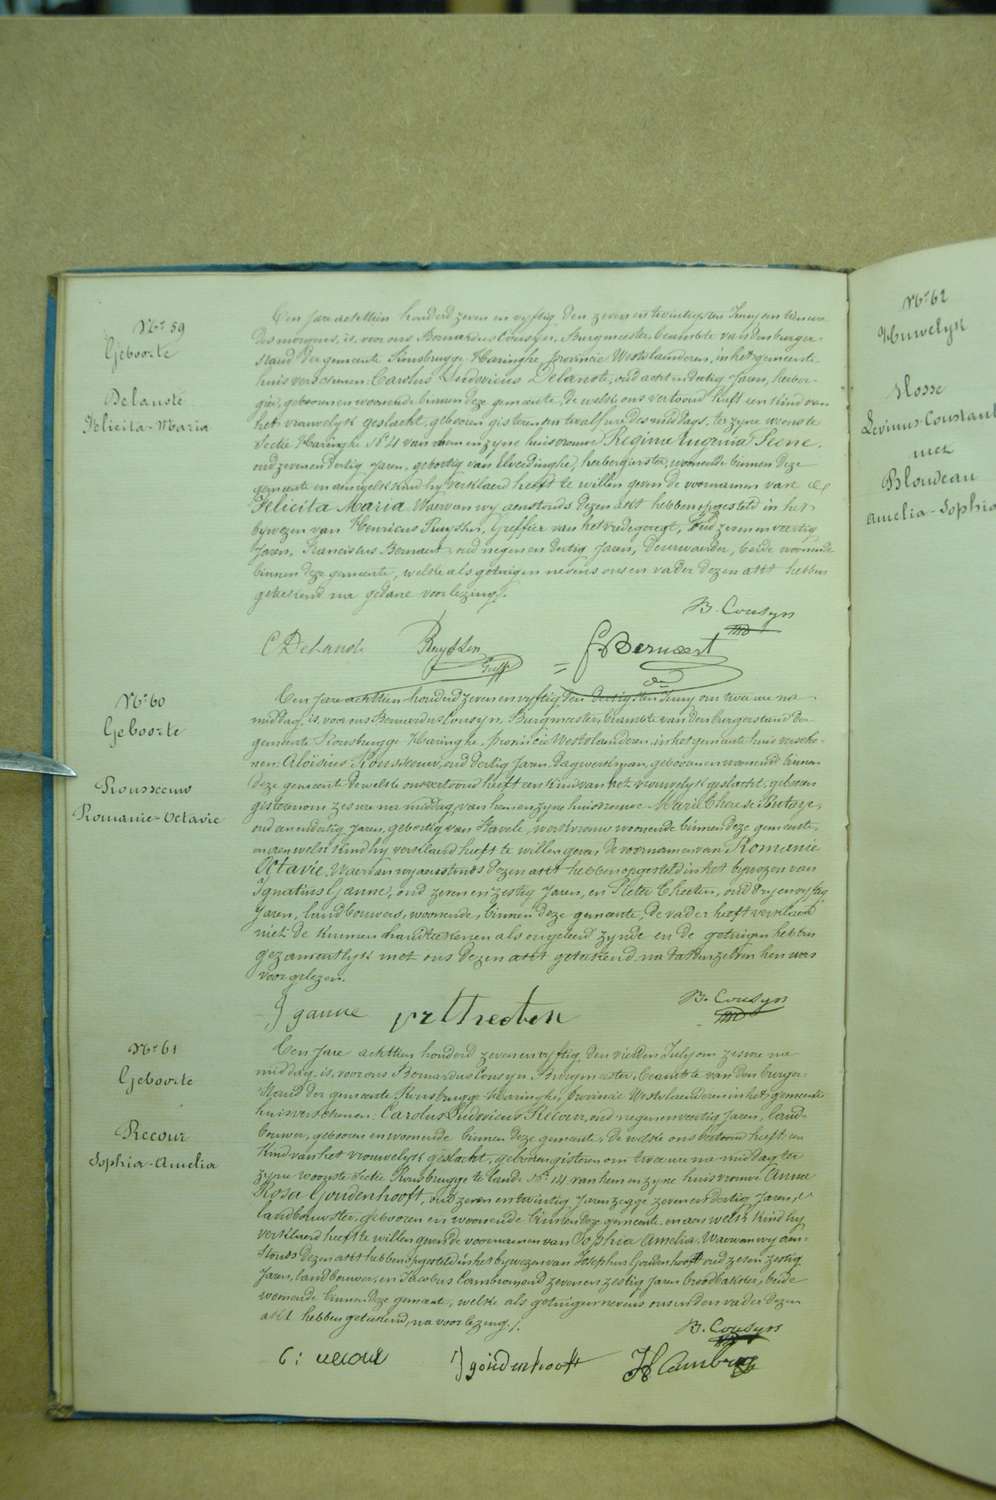 N.r 59
Geboorte
Delanote
Felicita-Maria
Een Jare achttien honderd zeven en vyftig, den zeven en twintigsten Juny ten
des morgens, is, voor ons Bernardus Cousyn, Burgmeester, beambte van den burger-
stand der gemeente Rousbrugge-Haringhe, provincie Westvlaanderen, in het gemeente
huis verschenen: Carolus Ludovicus Delanote, oud acht en dertig Jaren, herber-
gier, geboren en woonende binnen deze gemeente, de welke ons vertoond heeft een kind van
het vrouwelyk geslacht, geboren gisteren ten twaelf ure des middags, ter zyne woonste
Sectie Haringhe N.r 4 van hem en zyne huisvrouwe Regina Eugenia
oud zeven en dertig Jaren, geboortig van Elverdinghe, herbergierster, woonende binnen deze
gemeente en aen welk kind hy verklaerd heeft te willen geven de voornamen van
Felicita Maria. Waervan wy aenstonds dezen akt hebben opgesteld in het
bywezen van Henricus Ruyssen, Greffier van het vredegeregt, oud zeven en veertig
Jaren, Franciscus Bernaert, oud negen en dertig Jaren, Deurwaarder, beide woonende
binnen deze gemeente, welke als getuigen nevens ons en vader dezen akt hebben
geteekend na gedane voorlezing.
B. Cousyn
C Delanote Ruyssen Greff F. Bernaert
N.r 60
Geboorte
Rousseeuw
Romanie-Octavie
Een Jare achttien honderd zeven en vyftig den dertigsten Juny om twee ure na
middag, is, voor ons Bernardus Cousyn, Burgmeester, beambte van den burgerstand der
gemeente Rousbrugge-Haringhe, provincie Westvlaanderen, in het gemeente huis versche-
nen: Aloisius Rousseeuw, oud dertig Jaren, dagwerkman, geboren en woonende binnen
deze gemeente de welke ons vertoond heeft een kind van het vrouwelyk geslacht, geboren
gisteren om zes ure na middag, van hem en zyne huisvrouwe Marie Therese Butaye,
oud een en dertig Jaren, geboortig van Stavele, werkvrouw woonende binnen deze gemeente,
en aen welk kind hy verklaerd heeft te willen geven de voornamen van Romanie
Octavie, Waervan wy aenstonds dezen akt hebben opgesteld in het bywezen van
Ignatius Ganne, oud zeven en zestig Jaren, en Pieter Theeten, oud dry en vyftig
Jaren, landbouwers, woonende, binnen deze gemeente, De vader heeft verklaerd
niet te kunnen handteekenen als ongeleerd zynde en de getuigen hebben
gezamentlyk met ons dezen akt geteekend na dat het zelven hen was
voorgelezen.
J ganne pr Theeten B. Cousyn
N.r 61
Geboorte
Recour
Sophia-Amelia
Een Jare achttien honderd zeven en vyftig, den vierden July om zes ure na
middag, is, voor ons Bernardus Cousyn, Burgmeester, beambte van den burger-
stand der gemeente Rousbrugge-Haringhe, provincie Westvlaanderen in het gemeente
huis verschenen: Carolus Ludovicus Recour, oud negen en veertig Jaren, land-
bouwer, geboren en woonende binnen deze gemeente, de welke ons vertoond heeft een
kind van het vrouwelyk geslacht, geboren gisteren om twee ure na middag ter
zyne woonste Sectie Rousbrugge te lande N.r 14 van hem en zyne huisvrouwe Anna
Rosa Goudenhooft, oud zeven en twintig Jaren zegge zeven en dertig Jaren,
landbouwster, geboren en woonende binnen deze gemeente en aen welk kind hy
verklaerd heeft te willen geven de voornamen van Sophia Amelia. Waervan wy aen-
stonds dezen akt hebben opgesteld in het bywezen van Josephus Goudenhooft oud zes en zestig
Jaren, landbouwer, en Jacobus Cambron oud zeven en zestig Jaren broodbakker, beide
woonende binnen deze gemeente, welke als getuigen nevens ons en den vader dezen
akt hebben geteekend, na voorlezing.
B. Cousyn
C: recour J goudenhooft
N.r 62
Huwelyk
Mosse
Livinus-Constant
met
Blondeau
Amelia-Sophia